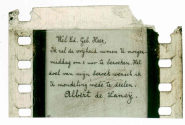 Wel Ed. Geb. Heer,
Ik zal de vrijheid nemen U morgen-
middag om 2 uur te bezoeken. Het
doel van mijn bezoek wensch ik
U mondeling mede te deelen.
Albert de Lancy.